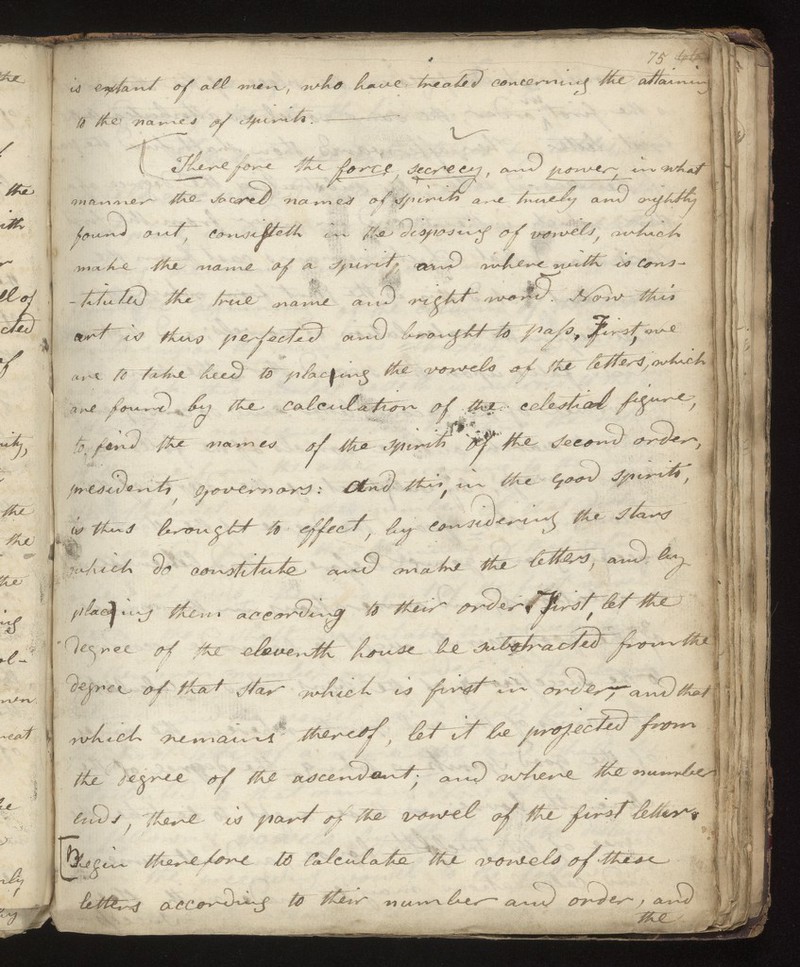 75
is extant of all men, who have treated concerning the attaining
to the names of spirits.
Therefore the force, secrecy, and power, in what
manner the sacred names of spirits are truely and rightly
found out, consisteth in the disposing of vowels, which
make the name of a spirit, and wherewith is cons-
-tituted the true name and right word. Now this
art is thus perfected and brought to pass. First, we
are to take heed to placing the vowels of the letters, which
are found by the calculation of the celestial figure,
to find the names of the spirits of the second order,
presidents, governors: And this, in the good spirits,
is thus brought to effect, by considering the stars
which do constitute and make the letters, and by
placing them according to their order. First, let the
degree of the eleventh house be subtracted from the
degree of that star which is first in order, and that
which remains thereof, let it be projected from
the degree of the ascendent; and where the number
ends, there is part of the vowel of the first letter.
Begin therefore to Calculate the vowels of these
letters according to their number and order, and
the